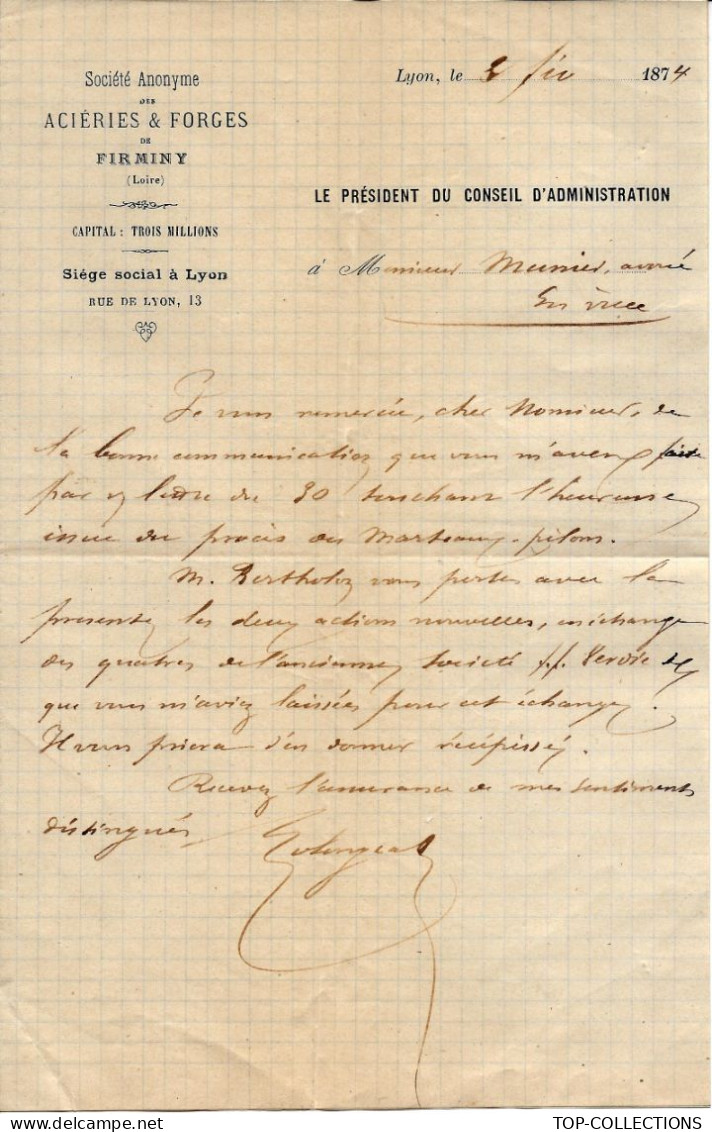 Société Anonyme
DES
ACIÉRIES & FORGES
DE
FIRMINY
(Loire)
CAPITAL : TROIS MILLIONS
Siége social à Lyon
RUE DE LYON, 13
Lyon, le 2 fév 1874
LE PRÉSIDENT DU CONSEIL D'ADMINISTRATION
à Monsieur Munier, avoué
En ville
Je vous remercie, cher Monsieur, de
la bonne communication que vous m'avez faite
par v/ lettre du 30 touchant l'heureuse
issue du procès des Marteaux-pilons.
M. Bertholoz vous portera avec la
présente, les deux actions nouvelles, en échange
des quatres de l'ancienne société F. F. Verdié &
que vous m'aviez laissées pour cet échange.
Il vous priera d'en donner récépissé.
Recevez l'assurance de mes sentiments
distingués
TOP-COLLECTIONS